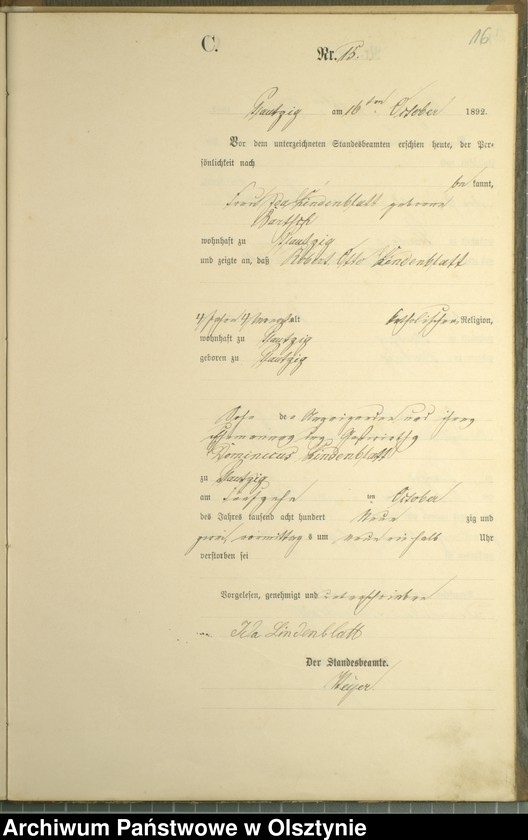 16
C.
Nr. 15.
am 16ten October 1892.
Vor dem unterzeichneten Standesbeamten erschien heute, der Per-
sönlichkeit nach
be kannt,
Frau Ida Lindenblatt geborene
Bartsch
wohnhaft zu
und zeigte an, daß Robert Otto Lindenblatt
4 Jahre 4 Monate alt katholischer Religion,
wohnhaft zu
geboren zu
Sohn der Anzeigenden und ihres
Ehemannes des Gastwirths
Dominicus Lindenblatt
zu
am ten October
des Jahres tausend acht hundert neun zig und
zwei vormittags um neun ein halb Uhr
verstorben sei
Vorgelesen, genehmigt und unterschrieben
Ida Lindenblatt
Der Standesbeamte.
Archiwum Państwowe w Olsztynie